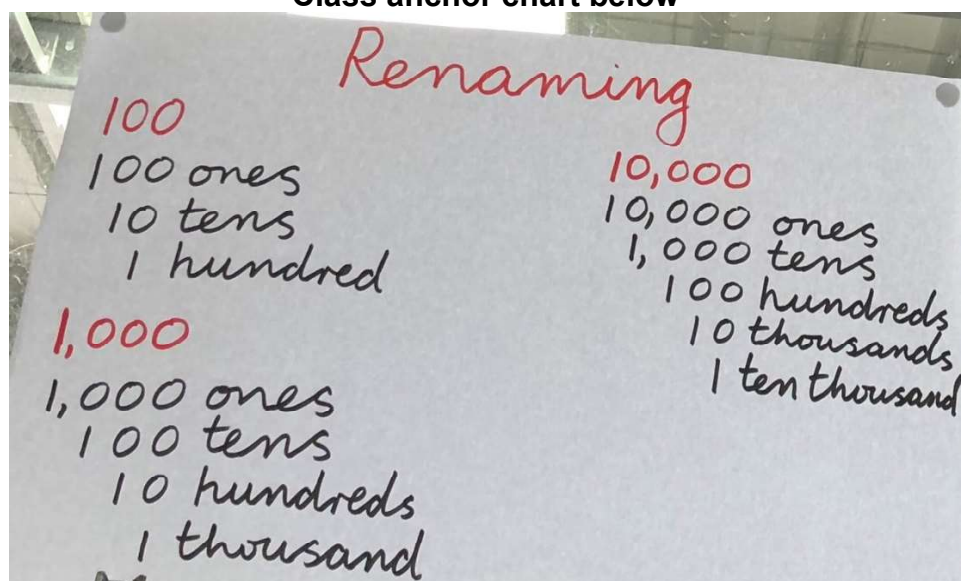 Class anchor chart below
Renaming
100
100 ones
10 tens
1 hundred
1,000
1,000 ones
100 tens
10 hundreds
1 thousand
10,000
10,000 ones
1,000 tens
100 hundreds
10 thousands
1 ten thousand